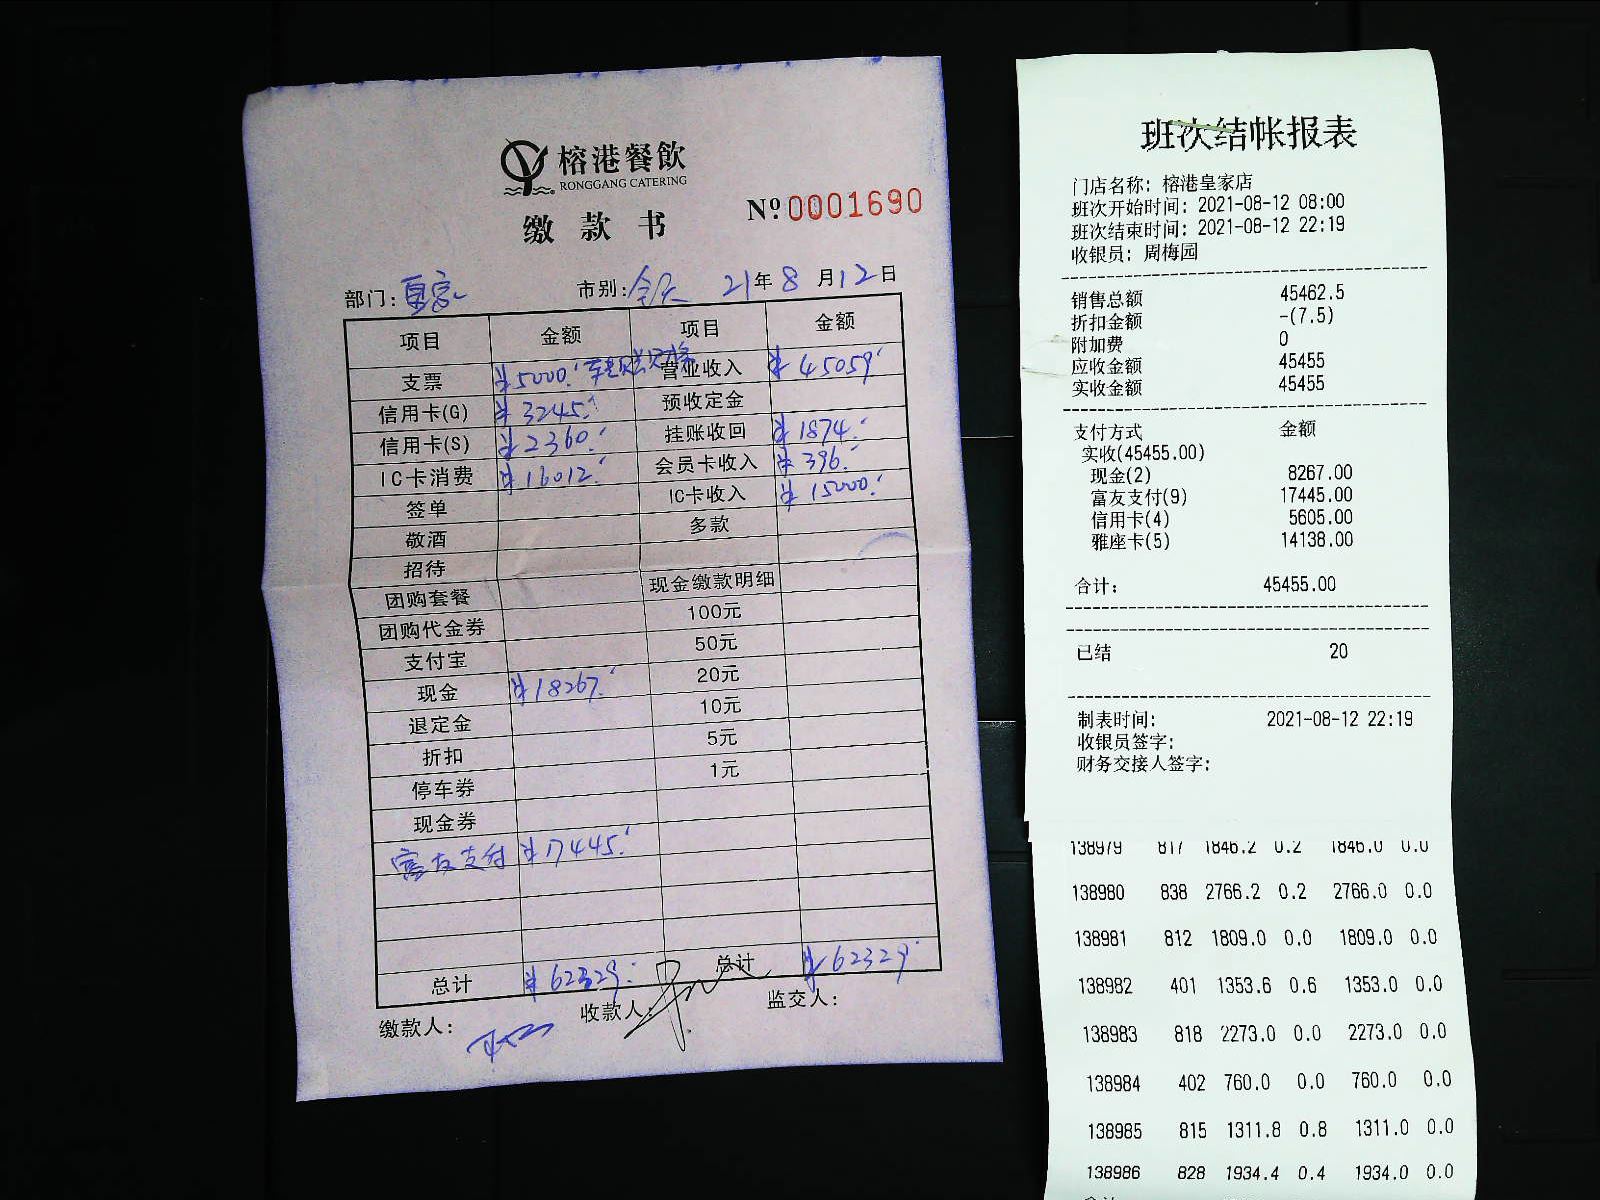 榕港餐飲
RONGGANG CATERING
缴款书
Nº 0001690
部门: 皇家 市别: 全天 21年8月12日
项目 金额 项目 金额
支票 ¥5000. 营业收入 ¥45059
信用卡(G) ¥3245. 预收定金
信用卡(S) ¥2360. 挂账收回 ¥1874.
IC卡消费 ¥16012. 会员卡收入 ¥396.
签单 IC卡收入 ¥15000.
敬酒 多款
招待
团购套餐 现金缴款明细
团购代金券 100元
支付宝 50元
现金 ¥18267. 20元
退定金 10元
折扣 5元
停车券 1元
现金券
富友支付 ¥17445.
总计 ¥62329. 总计 ¥62329
缴款人: 收款人: 监交人:
班次结帐报表
门店名称: 榕港皇家店
班次开始时间: 2021-08-12 08:00
班次结束时间: 2021-08-12 22:19
收银员: 周梅园
销售总额 45462.5
折扣金额 -(7.5)
附加费 0
应收金额 45455
实收金额 45455
支付方式 金额
实收(45455.00)
现金(2) 8267.00
富友支付(9) 17445.00
信用卡(4) 5605.00
雅座卡(5) 14138.00
合计: 45455.00
已结 20
制表时间: 2021-08-12 22:19
收银员签字:
财务交接人签字:
138979 817 1846.2 0.2 1846.0 0.0
138980 838 2766.2 0.2 2766.0 0.0
138981 812 1809.0 0.0 1809.0 0.0
138982 401 1353.6 0.6 1353.0 0.0
138983 818 2273.0 0.0 2273.0 0.0
138984 402 760.0 0.0 760.0 0.0
138985 815 1311.8 0.8 1311.0 0.0
138986 828 1934.4 0.4 1934.0 0.0